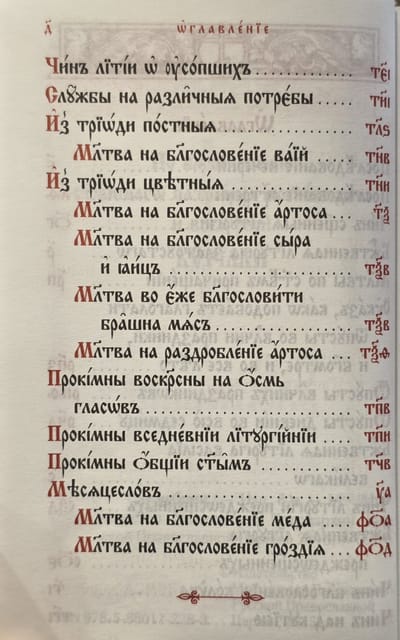 д҃ Ѡ҆главле́нїе
Чи́нъ лїті́и ѡ҆ ᲂу҆со́пшихъ ............ тє҃і
Слꙋ̑жбы на разли̑чныѧ потрє́бы ..... ти҃і
И҆з̾ трїѡ́ди по́стныѧ ................ тл҃ѕ
Мл҃тва на блгⷭ҇ове́нїе ва́їй ......... тн҃в
И҆з̾ трїѡ́ди цвѣ́тныѧ ............... тн҃и
Мл҃тва на бл҃гослове́нїе а҆́ртоса ...... тѯ҃
Мл҃тва на бл҃гослове́нїе сы́ра
и҆ ꙗ҆и́цъ ........................ тѯ҃в
Мл҃тва во є҆́же бл҃гослови́ти
бра̑шна мѧ́съ .................. тѯ҃в
Мл҃тва на раздробле́нїе а҆́ртоса .... тѯ҃ѳ
Прокі́мны воскрⷭ҇ны на ѻ҆́смь
гласѡ́въ ........................... тп҃в
Прокі́мны вседнє́внїи лїтꙋргі́йнїи ..... тп҃и
Прокі́мны ѻ҆́бщїи ст҃ы̑мъ ............ тч҃в
Мѣсѧцесло́въ ....................... у҃а
Мл҃тва на бл҃гослове́нїе ме́да ... фѻ҃а
Мл҃тва на бл҃гослове́нїе гро́здїѧ ... фѻ҃д